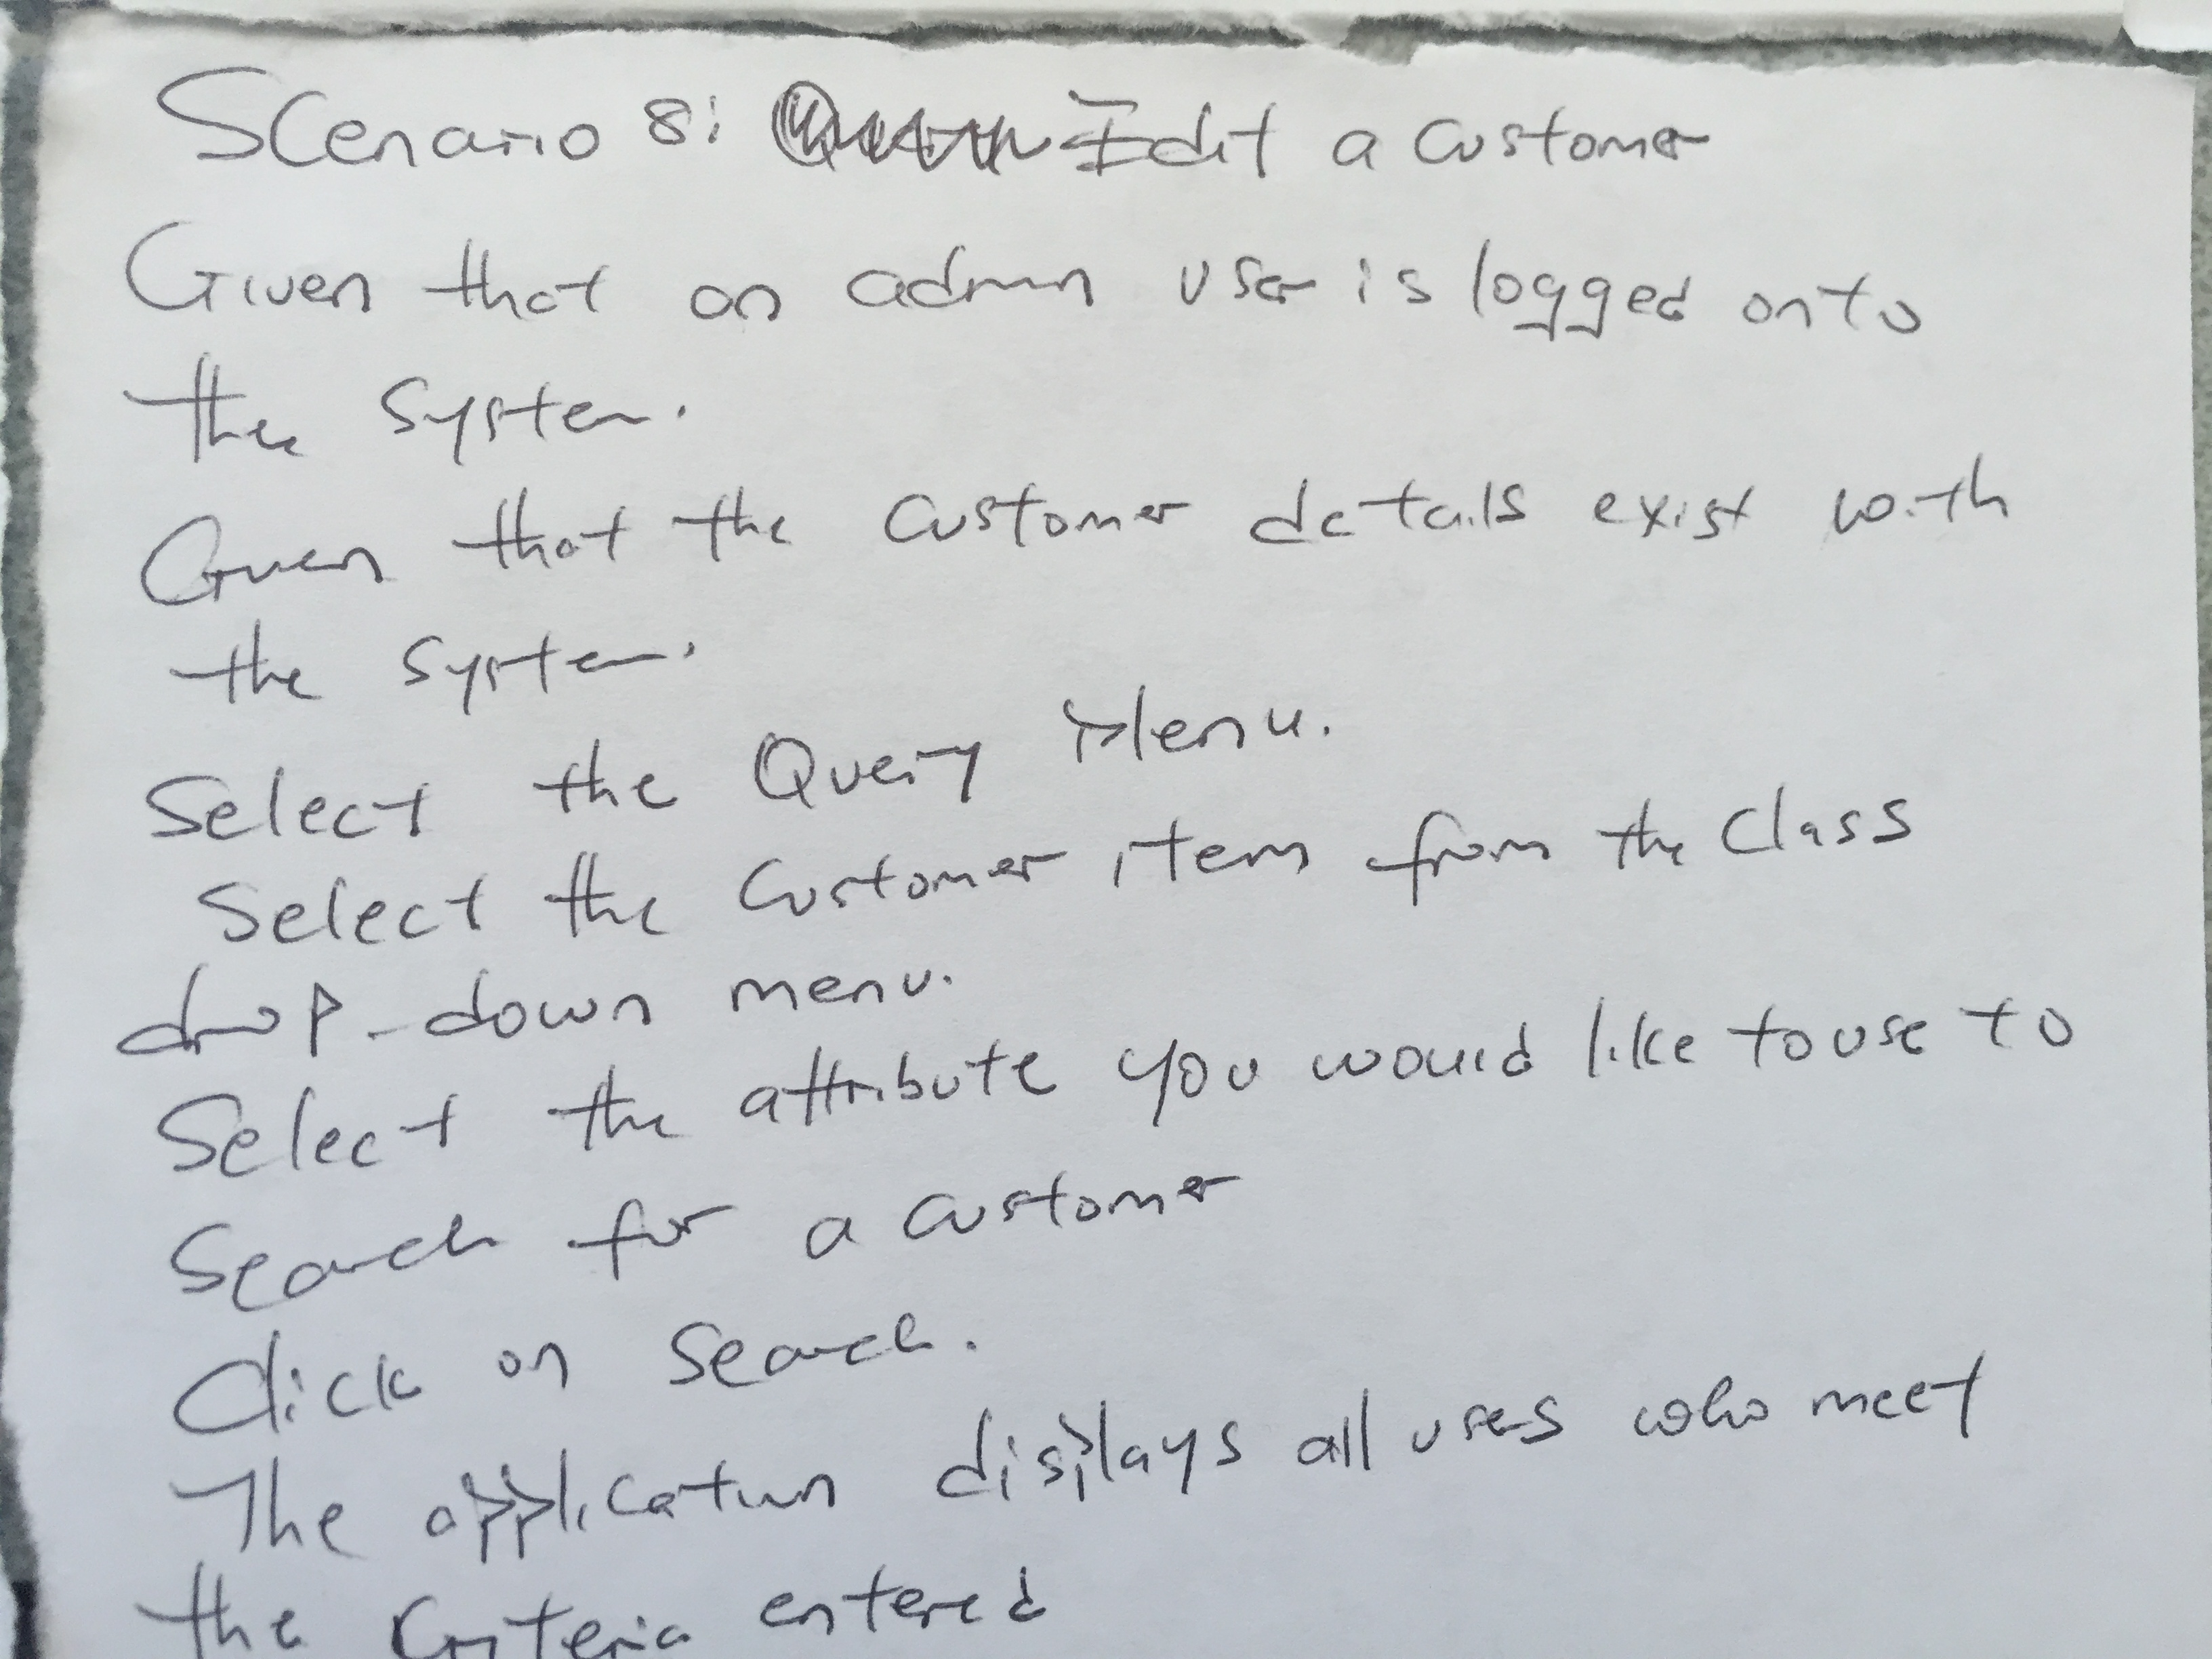 Scenario 8: Edit a customer
Given that an admin user is logged onto
the system.
Given that the customer details exist with
the system.
Select the Query Menu.
Select the customer item from the class
drop-down menu.
Select the attribute you would like to use to
search for a customer
Click on search.
The application displays all users who meet
the criteria entered